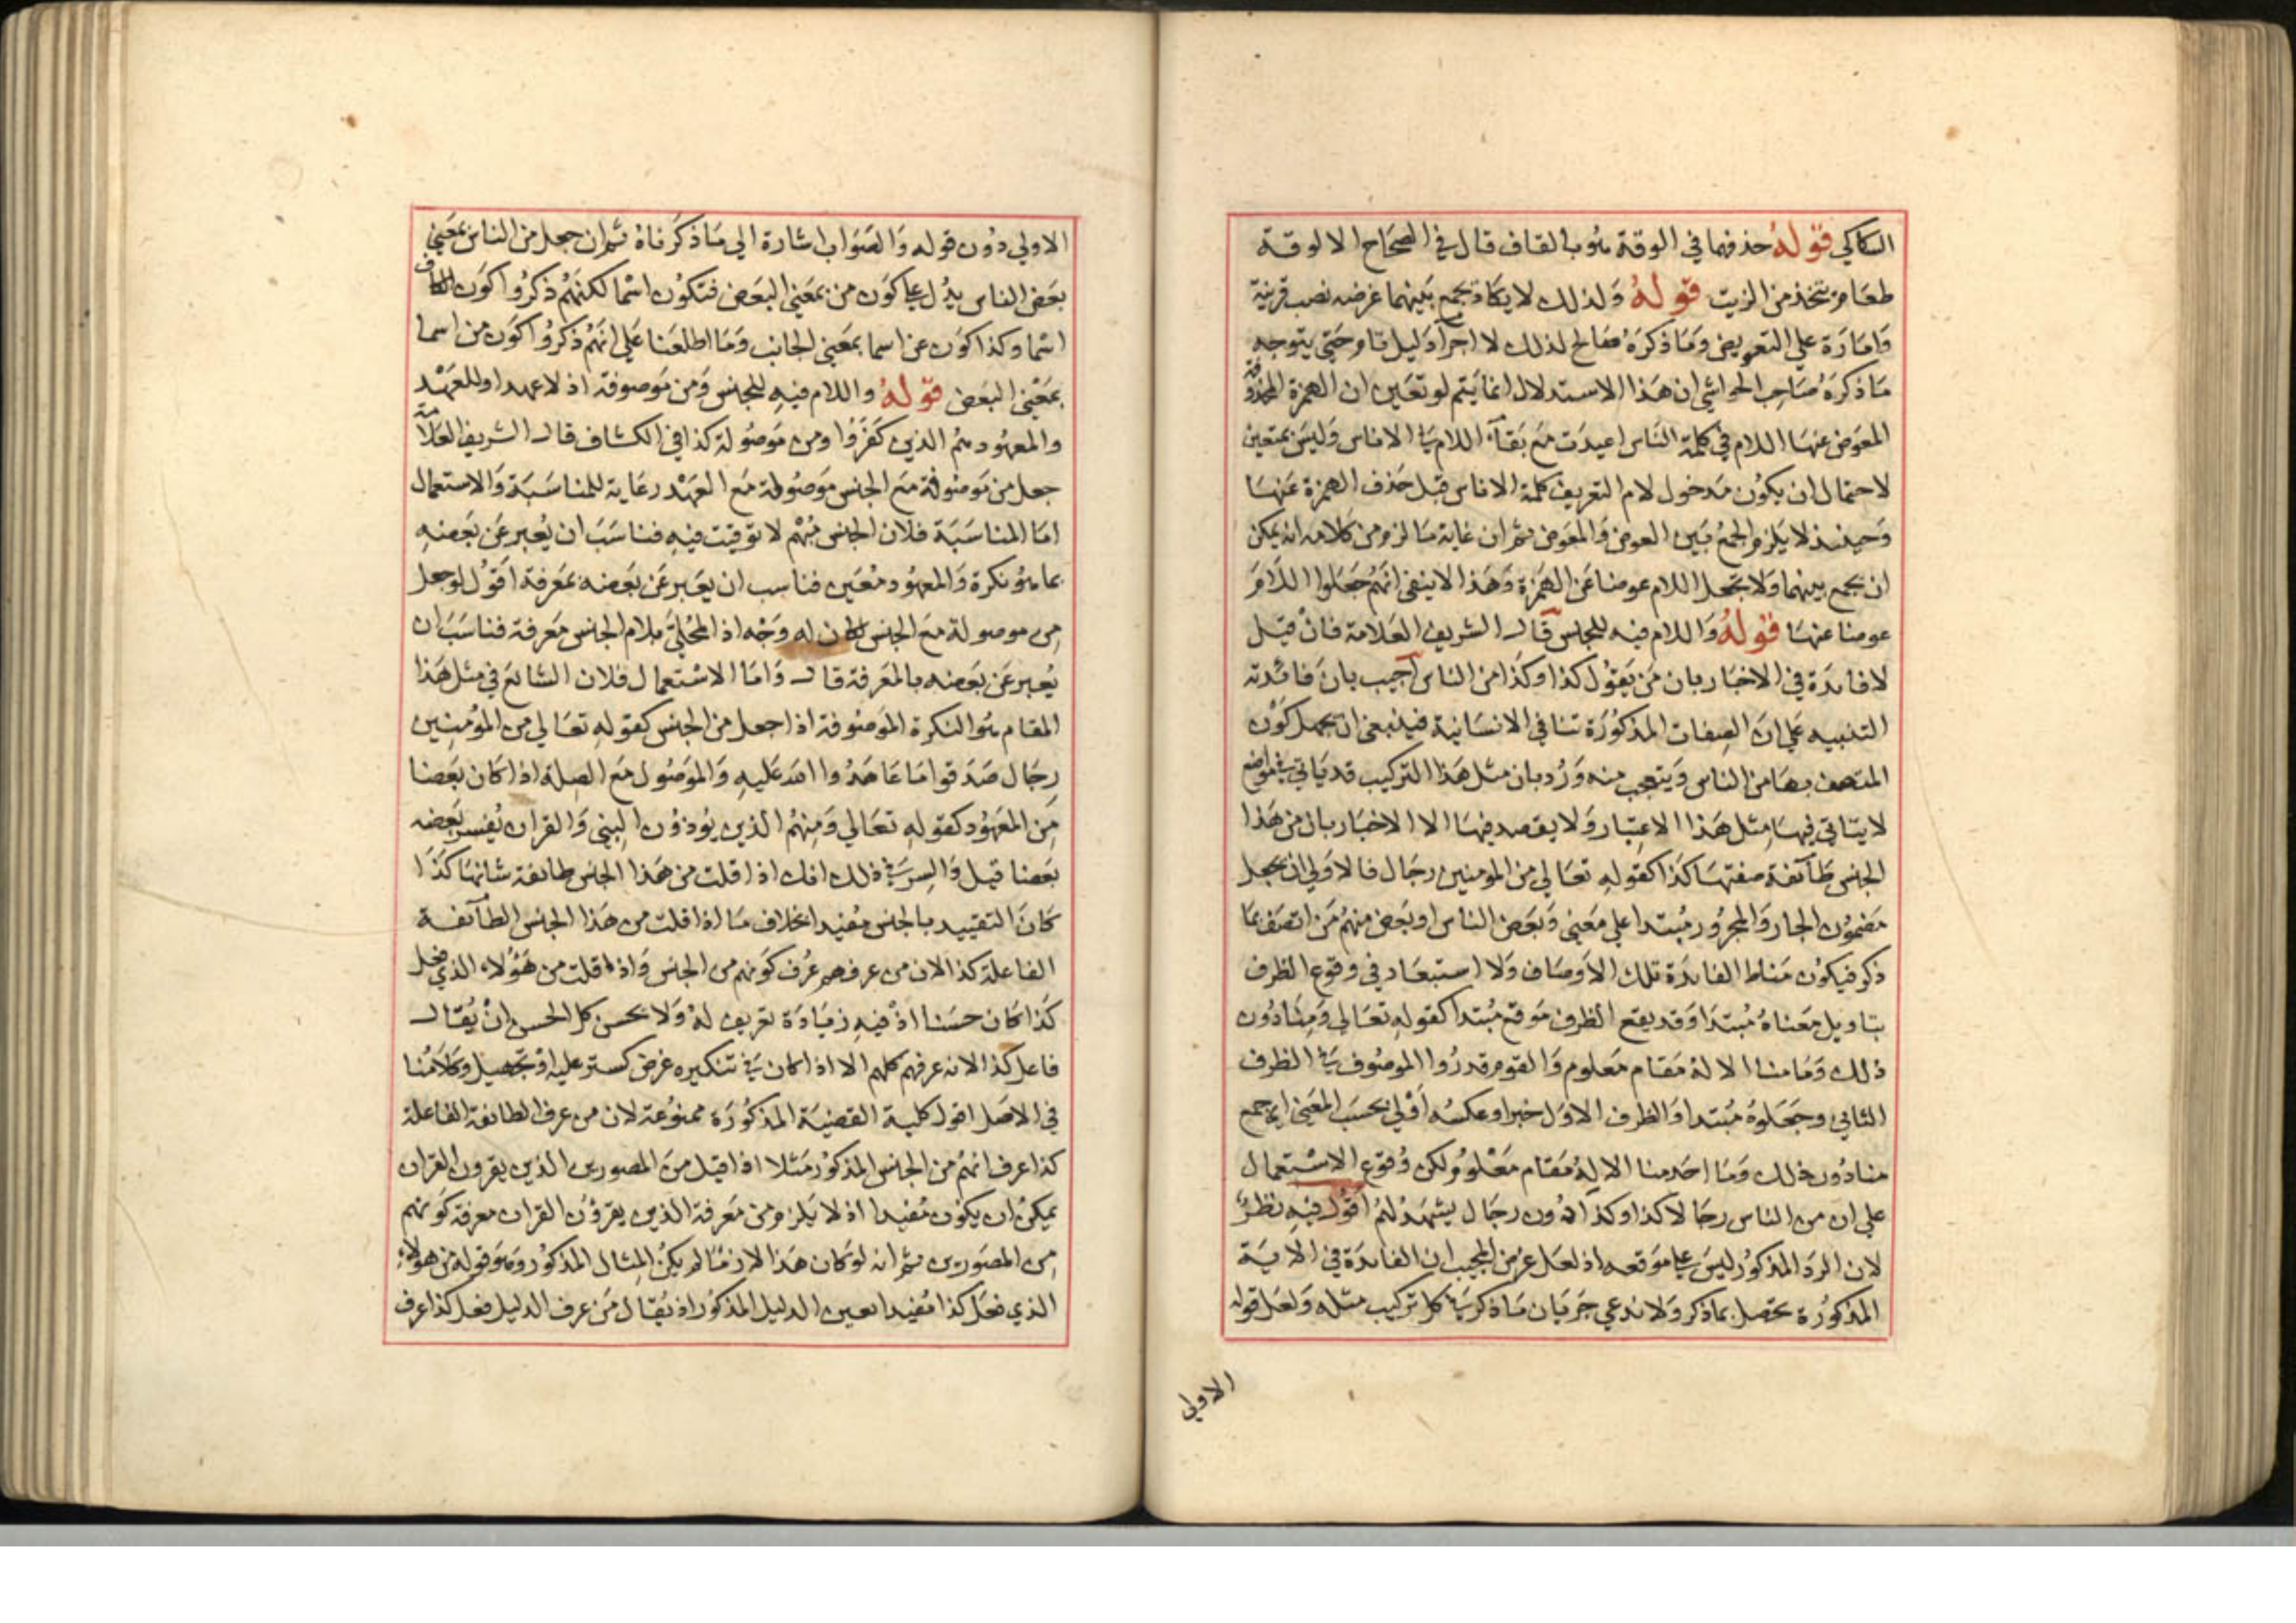 السكاكي قوله حذفها في الوقة هو بالقاف قال في الصحاح الالوقة
طعام يتخذ من الزيت قوله ولذلك لا يكاد يجمع بينهما غرضه نصب قرينة
وامارة علي التعويض وما ذكره صالح لذلك لا اجراء دليل تام حتي يتوجه
ما ذكره صاحب الحواشي ان هذا الاستدلال انما يتم لو تعين ان الهمزة المحذوفة
المعوض عنها اللام في كلمة الناس اعيدت مع بقاء اللام في الاناس وليس بمتعين
لاحتمال ان يكون مدخول لام التعريف كلمة الاناس قبل حذف الهمزة عنها
وحينئذ لا يلزم الجمع بين العوض والمعوض ثم ان غاية ما لزم من كلامه انه يمكن
ان يجمع بينهما ولا تجعل اللام عوضا عن الهمزة وهذا لا ينفي انهم جعلوا اللام
عوضا عنها قوله واللام فيه للجنس قال الشريف العلامة فان قيل
لا فائدة في الاخبار بان من يقول كذا وكذا من الناس اجيب بان فائدته
التنبيه علي ان الصفات المذكورة تنافي الانسانية فينبغي ان يجهل كون
المتصف بها من الناس ويتعجب منه ورد بان مثل هذا التركيب قد ياتي في مواضع
لا يتاتي فيها مثل هذا الاعتبار ولا يقصد فيها الا الاخبار بان من هذا
الجنس طآئفة صفتها كذا كقوله تعالي من المومنين رجال فالاولي ان يجعل
مضمون الجار والمجرور مبتدا علي معني وبعض الناس او بعض منهم من اتصف بما
ذكر فيكون مناط الفائدة تلك الاوصاف ولا استبعاد في وقوع الظرف
بتاويل معناه مبتدا وقد يقع الظرف موقع مبتدا كقوله تعالي ومنا دون
ذلك وما منا الا له مقام معلوم والقوم قدروا الموصوف في الظرف
الثاني وجعلوه مبتدا والظرف الاول خبرا وعكسه اولي بحسب المعني اي جمع
منا دون ذلك وما احد منا الا له مقام معلوم ولكن وقوع الاستعمال
علي ان من الناس رجالا كذا وكذا دون رجال يشهد لهم اقول فيه نظر
لان الرد المذكور ليس علي موقعه اذ لعل غرض المجيب ان الفائدة في الاية
المذكورة تحصل بما ذكر ولا ندعي جريان ما ذكر في كل تركيب مثله ولعل قوله
الاولي
الاولي دون قوله والصواب اشارة الي ما ذكرناه ثم ان جعل من الناس بمعني
بعض الناس يدل علي كون من بمعني البعض فتكون اسما لكنهم ذكروا كون الكاف
اسما وكذا كون عن اسما بمعني الجانب وما اطلعنا علي انهم ذكروا كون من اسما
بمعني البعض قوله واللام فيه للجنس ومن موصوفة اذ لا عهد او للعهد
والمعهود هم الذين كفروا ومن موصولة كذا في الكشاف قال الشريف العلامة
جعل من موصوفة مع الجنس موصولة مع العهد رعاية للمناسبة والاستعمال
اما المناسبة فلان الجنس مبهم لا توقيت فيه فناسب ان يعبر عن بعضه
بما هو نكرة والمعهود معين فناسب ان يعبر عن بعضه بمعرفة اقول لو جعل
من موصولة مع الجنس لكان له وجه اذ المحلي بلام الجنس معرفة فناسب ان
يعبر عن بعضه بالمعرفة قال واما الاستعمال فلان الشائع في مثل هذا
المقام هو النكرة الموصوفة اذا جعل من الجنس كقوله تعالي من المؤمنين
رجال صدقوا ما عاهدوا الله عليه والموصول مع الصلة اذا كان بعضا
من المعهود كقوله تعالي ومنهم الذين يؤذون النبي والقران يفسر بعضه
بعضا قيل والسر في ذلك انك اذا قلت من هذا الجنس طائفة شانها كذا
كان التقييد بالجنس مفيدا بخلاف ما اذا قلت من هذا الجنس الطآئفة
الفاعلة كذا لان من عرفهم عرف كونهم من الجنس واذا قلت من هؤلاء الذي فعل
كذا كان حسنا اذ فيه زيادة تعريف له ولا يحسن كل الحسن ان يقال
فاعل كذا لانه عرفهم كلهم الا اذا كان في تنكيره غرض كستر عليه او تجهيل وكلامنا
في الاصل اقول كلية القضية المذكورة ممنوعة لان من عرف الطائفة الفاعلة
كذا عرف انهم من الجنس المذكور مثلا اذا قيل من المصورين الذين يقرون القران
يمكن ان يكون مفيدا اذ لا يلزم من معرفة الذين يقرؤن القران معرفة كونهم
من المصورين ثم انه لو كان هذا لازما لم يكن المثال المذكور وهو قوله من هولاء
الذي فعل كذا مفيدا بعين الدليل المذكور اذ يقال من عرف الدليل فعل كذا عرف